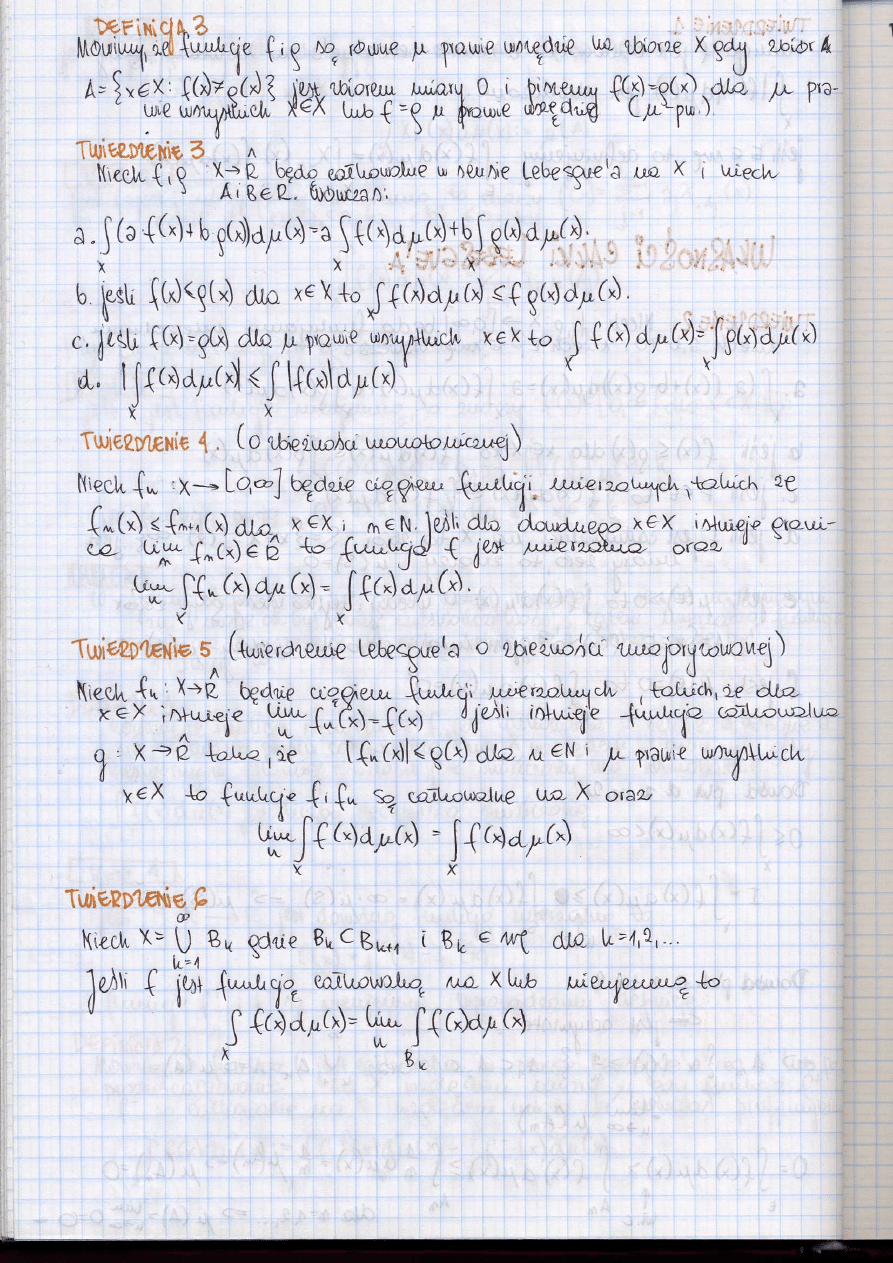 DEFINICJA 3
Mówimy, że funkcje f i g są równe μ prawie wszędzie na zbiorze X gdy zbiór A
A={x∈X: f(x)≠g(x)} jest zbiorem miary 0 i piszemy f(x)=g(x) dla μ pra-
wie wszystkich x∈X lub f=g μ prawie wszędzie (μ-pw.)
TWIERDZENIE 3
Niech f, g : X→R̂ będą całkowalne w sensie Lebesgue'a na X i niech
A i B∈R. Wówczas:
a. ∫_X (a·f(x)+b·g(x))dμ(x)=a∫_X f(x)dμ(x)+b∫_X g(x)dμ(x).
b. jeśli f(x)≤g(x) dla x∈X to ∫_X f(x)dμ(x)≤∫g(x)dμ(x).
c. jeśli f(x)=g(x) dla μ prawie wszystkich x∈X to ∫_X f(x)dμ(x)=∫_X g(x)dμ(x)
d. |∫_X f(x)dμ(x)|≤∫_X |f(x)|dμ(x)
TWIERDZENIE 4. (O zbieżności monotonicznej)
Niech fn : X→[0,∞] będzie ciągiem funkcji mierzalnych, takich że
fn(x)≤fn+1(x) dla x∈X i n∈N. Jeśli dla dowolnego x∈X istnieje grani-
ca lim_n fn(x)∈R̂ to funkcja f jest mierzalna oraz
lim_n ∫_X fn(x)dμ(x)=∫_X f(x)dμ(x).
TWIERDZENIE 5 (twierdzenie Lebesgue'a o zbieżności zmajoryzowanej)
Niech fn: X→R̂ będzie ciągiem funkcji mierzalnych, takich, że dla
x∈X istnieje lim_n fn(x)=f(x) jeśli istnieje funkcja całkowalna
g : X→R̂ taka, że |fn(x)|≤g(x) dla n∈N i μ prawie wszystkich
x∈X to funkcje f i fn są całkowalne na X oraz
lim_n ∫_X f(x)dμ(x)=∫_X f(x)dμ(x)
TWIERDZENIE 6
Niech X=⋃_{k=1}^∞ Bk gdzie Bk⊂Bk+1 i Bk∈ dla k=1,2,...
Jeśli f jest funkcją całkowalną na X lub nieujemną to
∫_X f(x)dμ(x)=lim_n ∫_{Bk} f(x)dμ(x)